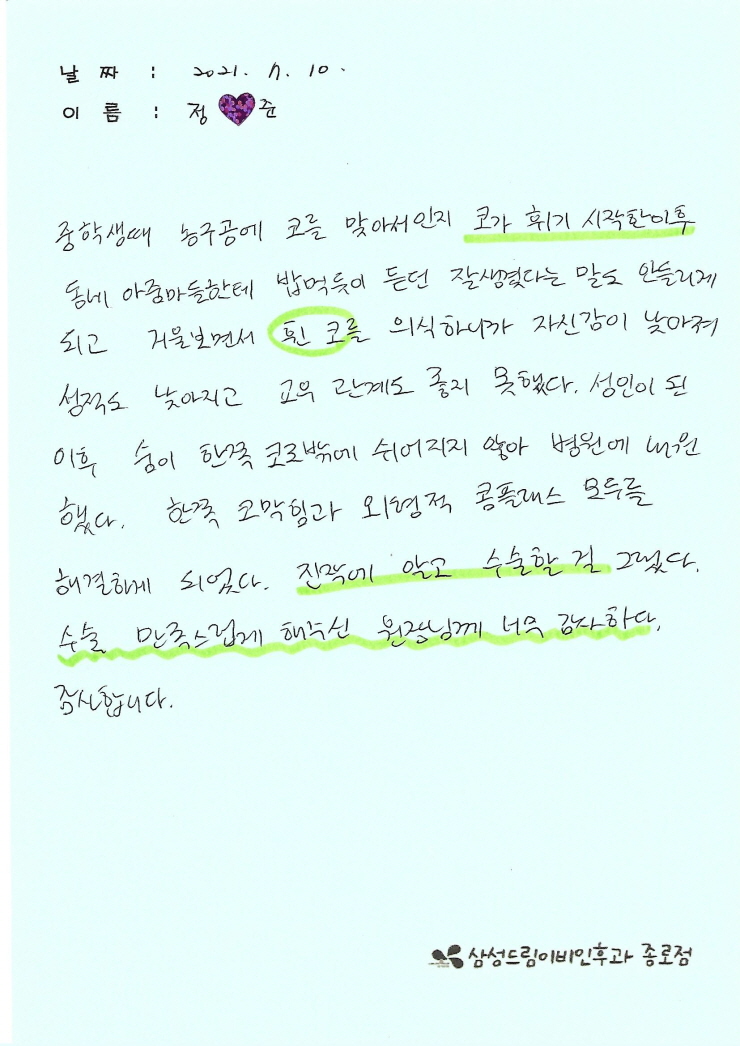 날 짜 : 2021. 7. 10.
이 름 : 정 준
중학생때 농구공에 코를 맞아서인지 코가 휘기 시작한이후
동네 아줌마들한테 밥먹듯이 듣던 잘생겼다는 말도 안들리게
되고 거울보면서 휜 코를 의식하니까 자신감이 낮아져
성적도 낮아지고 교우 관계도 좋지 못했다. 성인이 된
이후 숨이 한쪽 코로밖에 쉬어지지 않아 병원에 내원
했다. 한쪽 코막힘과 외형적 콤플래스 모두를
해결하게 되었다. 진작에 알고 수술할 걸 그랬다.
수술 만족스럽게 해주신 원장님께 너무 감사하다.
합니다.
삼성드림이비인후과 종로점